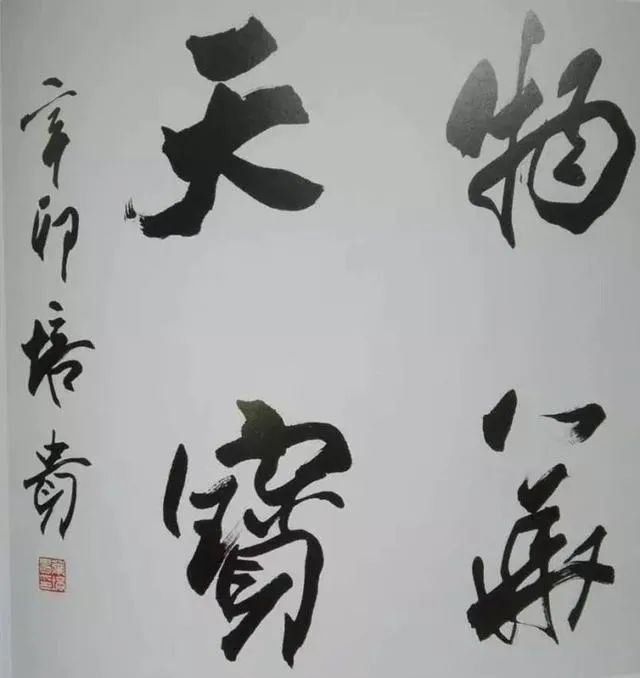 物華
天寶
辛卯培貴